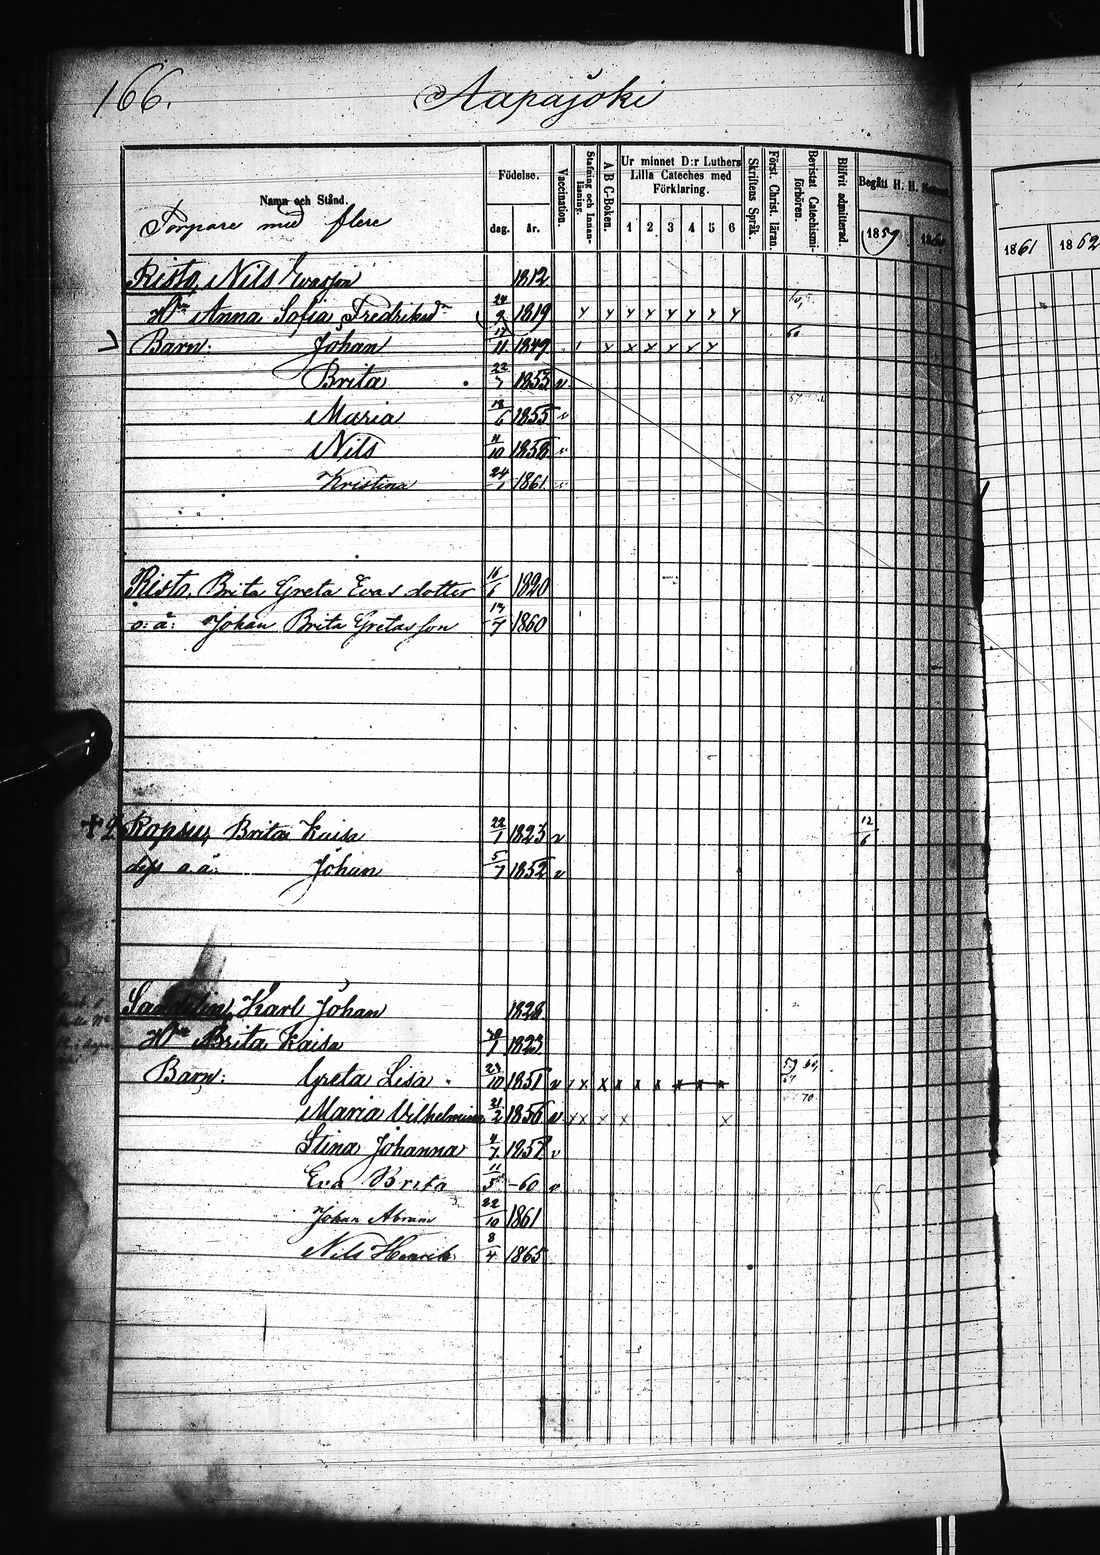 166. Aapajoki
Namn och Stånd. Födelse. dag. år. Vaccination. Stafning och Innanläsning. A B C-Boken. Ur minnet D:r Luthers Lilla Cateches med Förklaring. 1 2 3 4 5 6 Skriftens Språk. Först. Christ. läran. Bevistat Catechismiförhören. Blifvit admitterad. Begått H. H. Nattvard. 1859 1861 1862
Torpare med flere
Risto, Nils Evasson 1812
H:n Anna Sofia Fredriksd:r 1819 v v v v v v v v
Barn: Johan 11 1849 60
Brita 22/7 1853 v
Maria 18/6 1855 v
Nils 11/10 1858 v
Kristina 24/1 1861
Risto, Brita Greta Evas dotter 16/6 1820
o: ä: Johan Brita Gretas son 1860
Brita Kaisa 22/1 1823 v 12/6
dess o. ä. Johan 5/7 1852 v
Karl Johan 1828
H:n Brita Kaisa 1823
Barn: Greta Lisa 23/10 1851 v x x x x x x x x 59 60,
Maria Vilhelmina 21/2 1856 v x x x x x 70
Stina Johanna 4/7 1858 v
Eva Brita 11/5 -60 v
Johan Abram 22/10 1861
Nils Henrik 8/4 1865